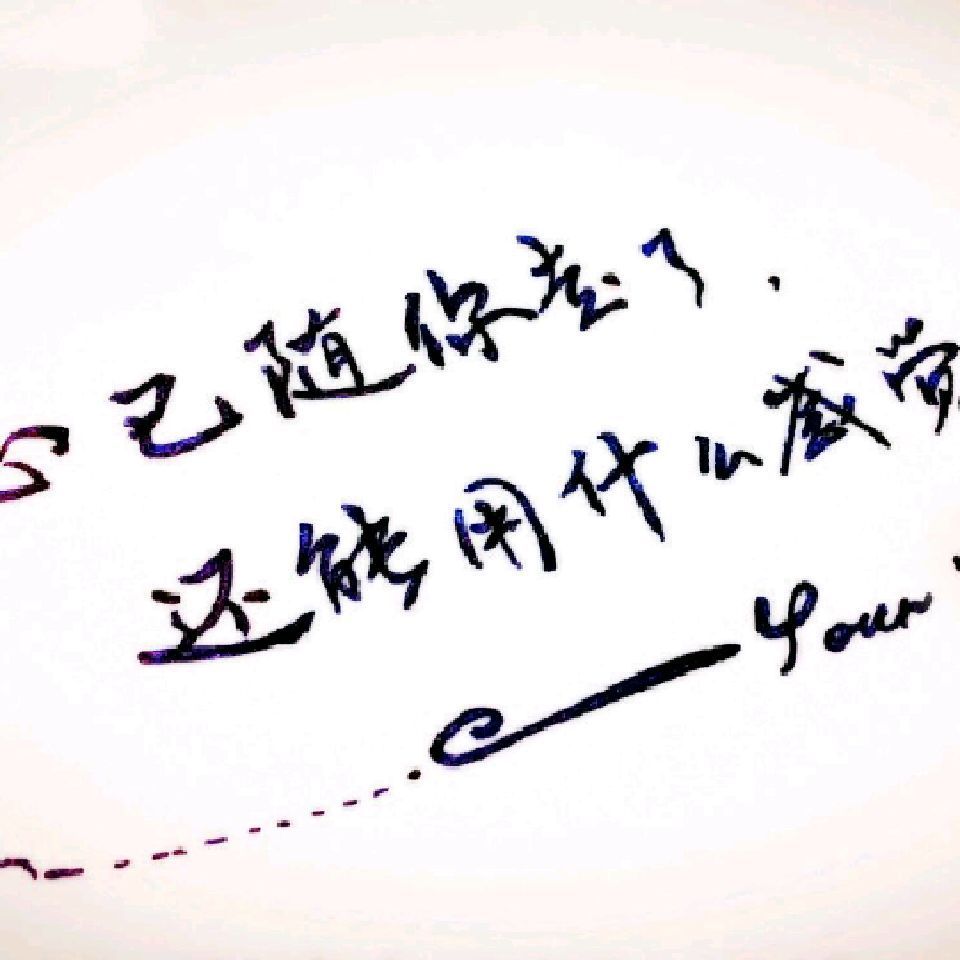 已随你去了.
还能用什么感觉
Your